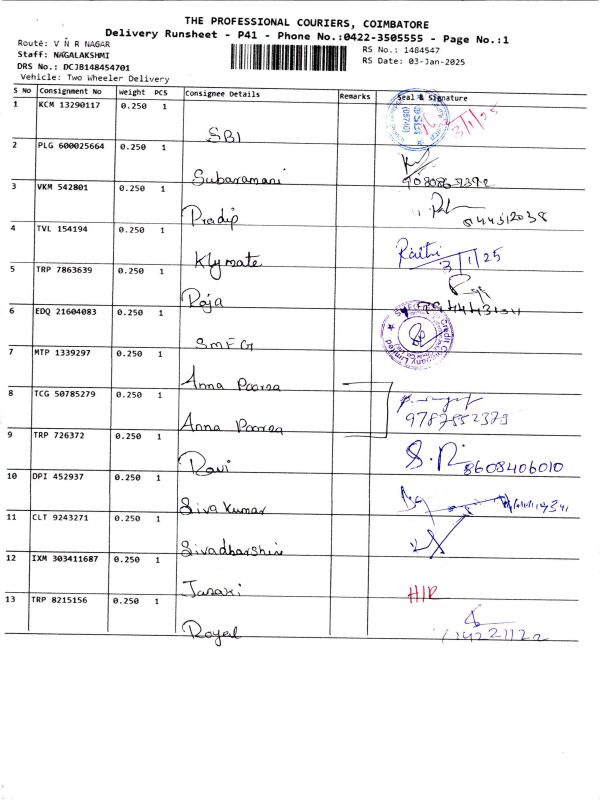 THE PROFESSIONAL COURIERS, COIMBATORE
Delivery Runsheet - P41 - Phone No.:0422-3505555 - Page No.:1
Route: V N R NAGAR
RS No.: 1484547
Staff: NAGALAKSHMI
RS Date: 03-Jan-2025
DRS No.: DCJB148454701
Vehicle: Two Wheeler Delivery
S No Consignment No Weight PCS Consignee Details Remarks Seal & Signature
1 KCM 13290117 0.250 1 SBI 3/1/25
2 PLG 600025664 0.250 1 Subaramani
3 VKM 542801 0.250 1 Pradip
4 TVL 154194 0.250 1 Klymate 3/1/25
5 TRP 7863639 0.250 1 Raja
6 EDQ 21604083 0.250 1 SMFG
7 MTP 1339297 0.250 1 Anna Poorna
8 TCG 50785279 0.250 1 Anna Poorna 9787552379
9 TRP 726372 0.250 1 Ravi 8608406010
10 DPI 452937 0.250 1 Siva Kumar
11 CLT 9243271 0.250 1 Sivadharshini
12 IXM 303411687 0.250 1 Janaki
13 TRP 8215156 0.250 1 Royal